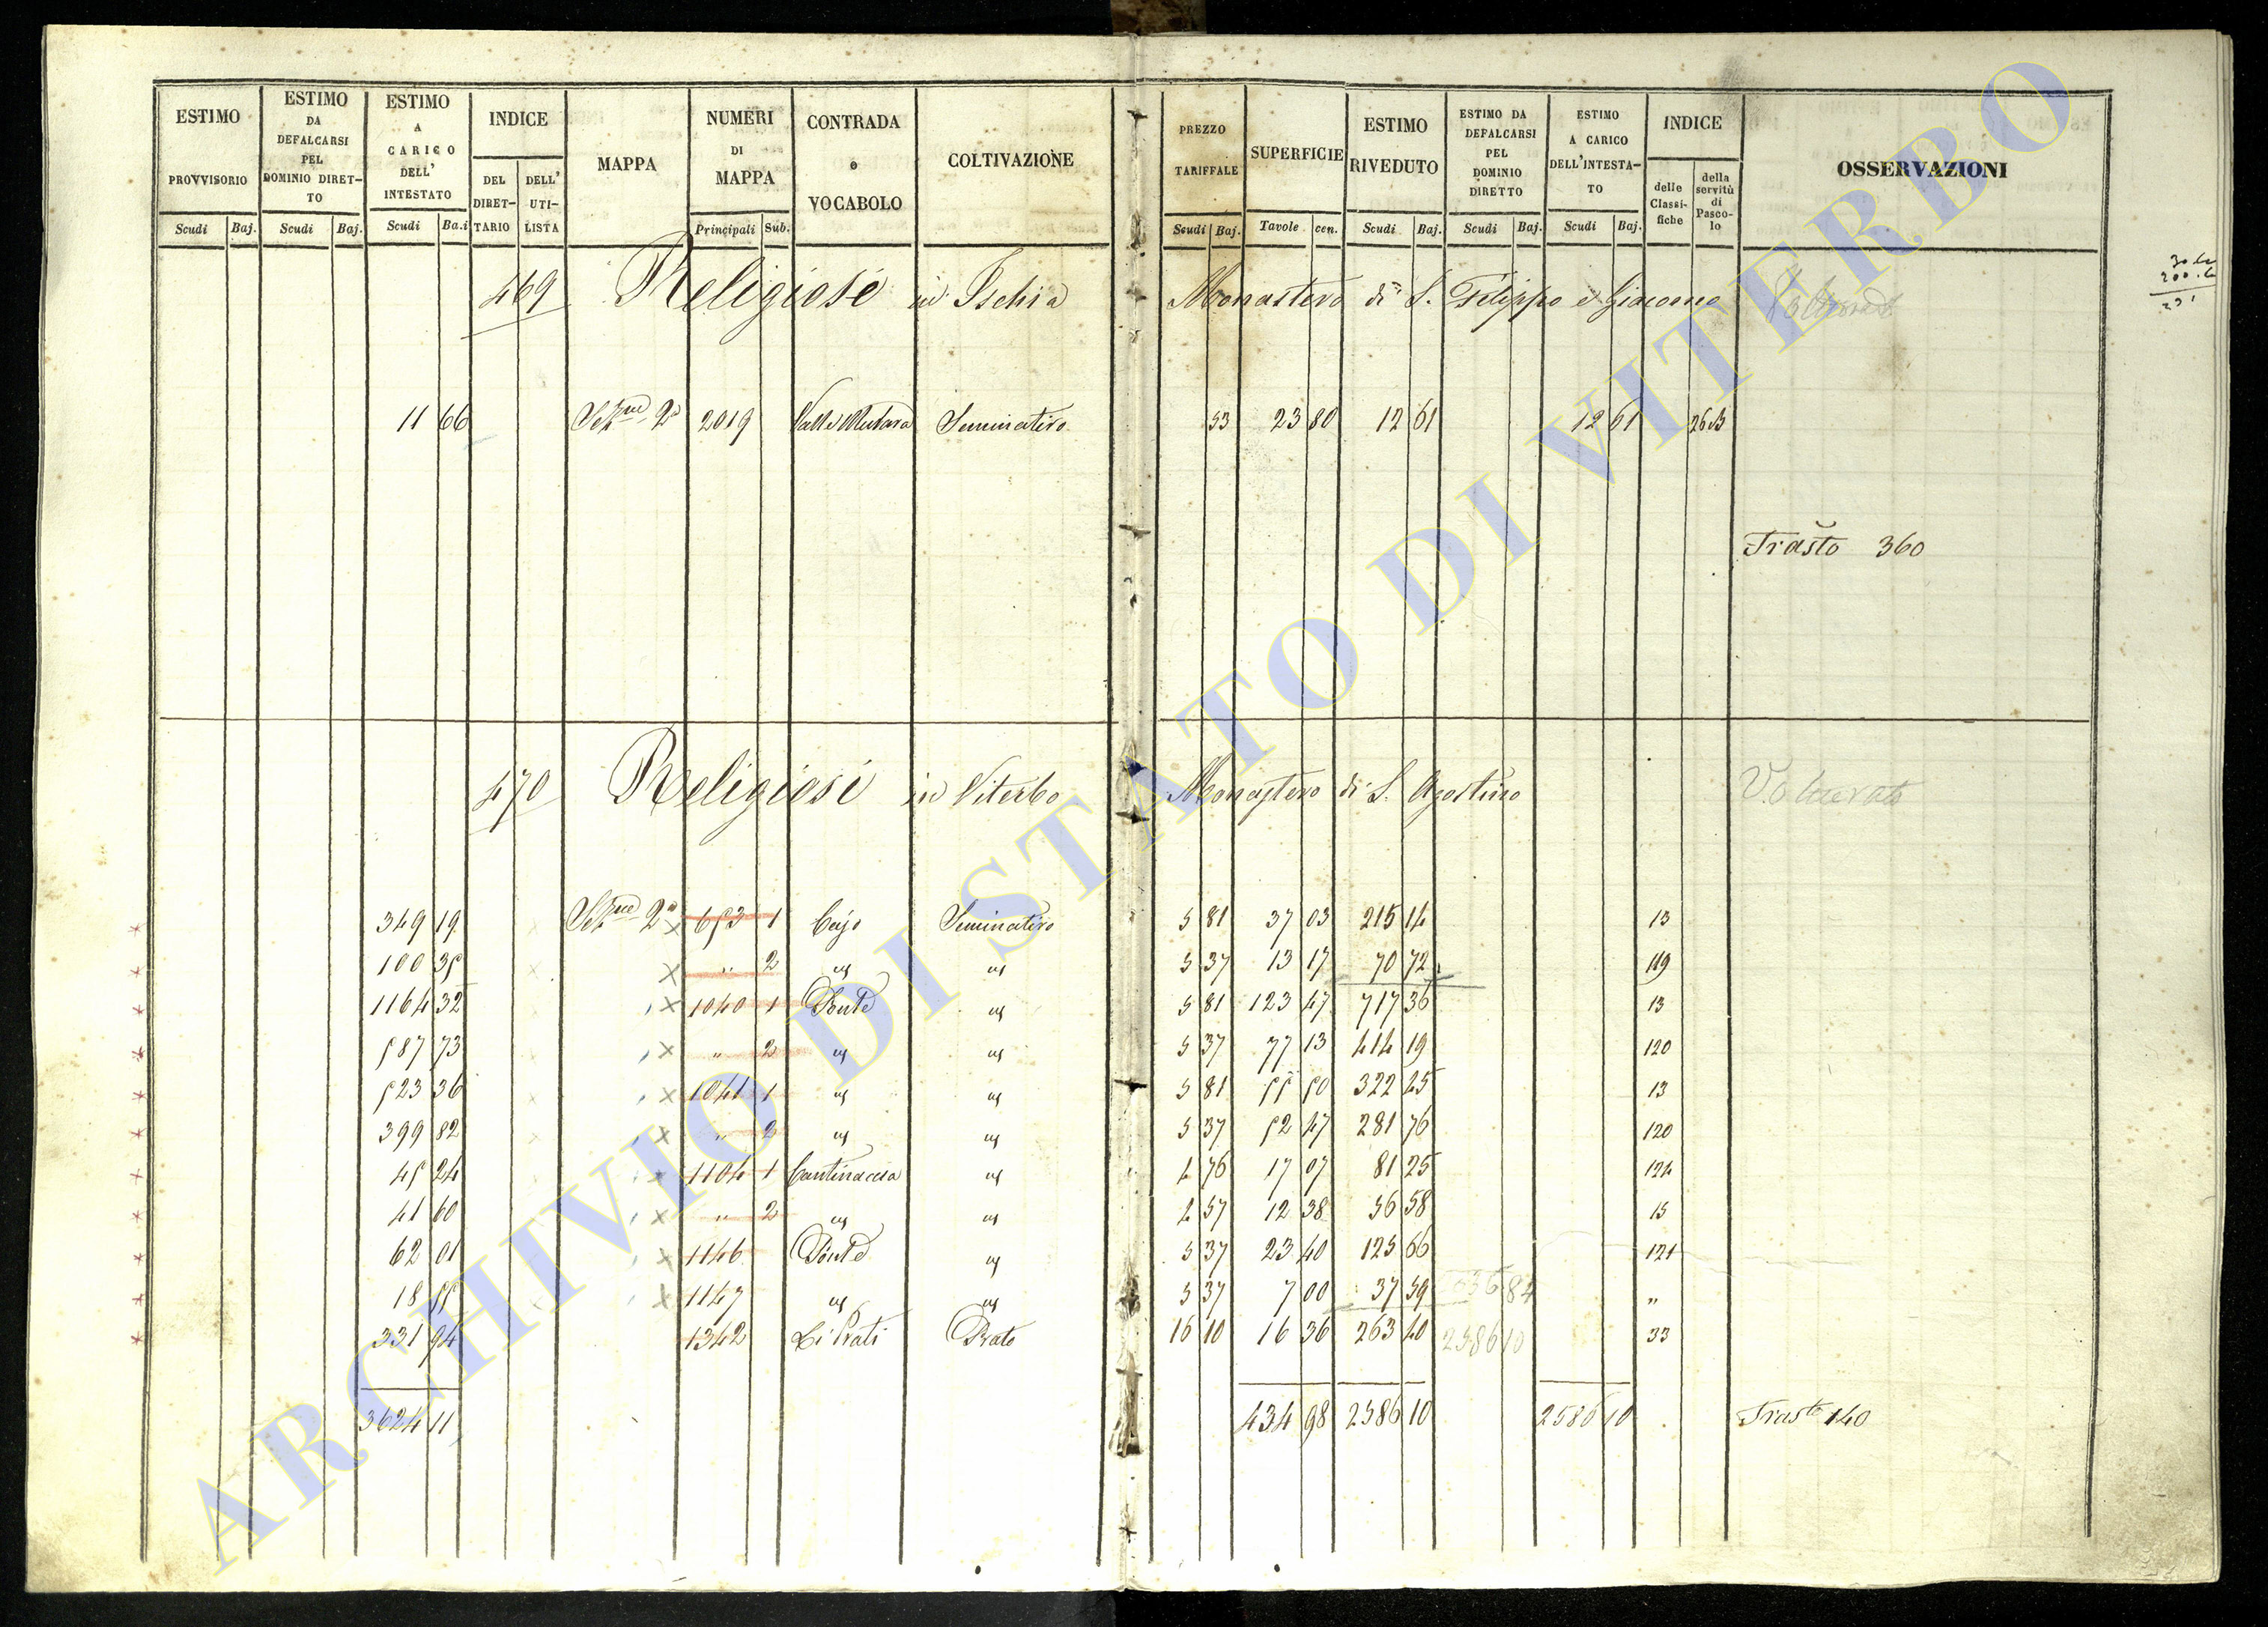 ESTIMO PROVVISORIO
ESTIMO DA DEFALCARSI PEL DOMINIO DIRET-TO
ESTIMO A CARICO DELL' INTESTATO
INDICE
DEL DIRET-TARIO
DELL' UTI-LISTA
MAPPA
NUMERI DI MAPPA
CONTRADA o VOCABOLO
COLTIVAZIONE
PREZZO TARIFFALE
SUPERFICIE
ESTIMO RIVEDUTO
ESTIMO DA DEFALCARSI PEL DOMINIO DIRETTO
ESTIMO A CARICO DELL'INTESTA-TO
INDICE
delle Classi-fiche
della servitù di Pasco-lo
OSSERVAZIONI
Scudi Baj. Scudi Baj. Scudi Ba.i Principali Sub. Scudi Baj. Tavole cen. Scudi Baj. Scudi Baj. Scudi Baj.
469 Religiosi in Ischia Monastero di S. Filippo e Giacomo
11 66 Sezne 2a 2019 Seminativo 53 23 80 12 61 12 61
Trasto 360
470 Religiosi in Viterbo Monastero di S. Agostino Volturato
349 19 Sezne 2a 653 1 Cajo Seminativo 5 81 37 03 215 14 13
100 35 " 2 " " 5 37 13 17 70 72 119
1164 32 1040 1 Ponte " 5 81 123 47 717 36 13
587 73 " 2 " " 5 37 77 13 414 19 120
523 36 1041 1 " " 5 81 55 50 322 45 13
399 82 " 2 " " 5 37 52 47 281 76 120
45 24 1104 1 Cantinaccia " 4 76 17 07 81 25 124
41 60 " 2 " " 12 38 56 58 15
62 01 1146 Ponte " 5 37 23 40 125 66 121
18 55 1147 " " 5 37 7 00 37 59 "
331 94 1342 Li Prati Prato 16 10 16 36 263 40 2586 10 33
3624 11 434 98 2586 10 2586 10 Trasto 140
ARCHIVIO DI STATO DI VITERBO